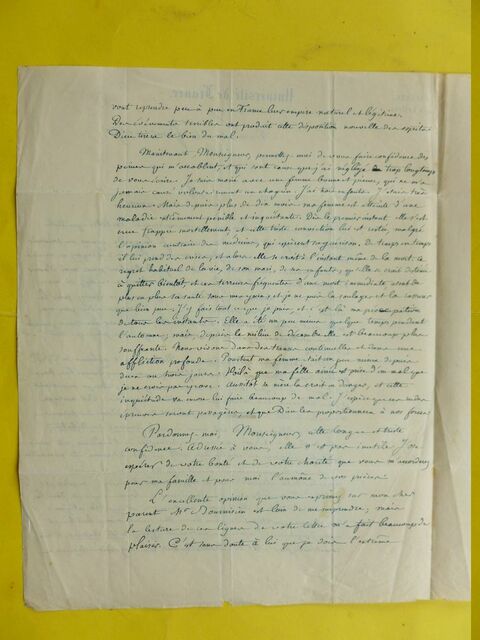 vont reprendre peu à peu en France leur empire naturel et légitime.
Des événements terribles ont produit cette disposition nouvelle des esprits.
Dieu tirera le bien du mal.
Maintenant, Monseigneur, permettez-moi de vous faire confidence des
peines qui m'accablent, et qui sont cause que j'ai négligé trop longtemps
de vous écrire. Je suis marié avec une femme bonne et pieuse, qui ne m'a
jamais causé volontairement un chagrin. J'ai trois enfants. J'étais très
heureux. Mais depuis plus de dix mois ma femme est atteinte d'une
maladie extrêmement pénible et inquiétante. Dès le premier instant elle s'est
crue frappée mortellement, et cette triste conviction lui est restée, malgré
l'opinion contraire des médecins, qui espèrent sa guérison. De temps en temps
il lui prend des crises, et alors elle se croit à l'instant même de la mort. Ce
regret habituel de la vie, de son mari, de ses enfants, qu'elle se croit destinée
à quitter bientôt, et ces terreurs fréquentes d'une mort immédiate
plus en plus sa santé sous mes yeux, et je ne puis la soulager et la rassurer
que bien peu. J'y fais tout ce que je puis, et c'est là ma préoccupation
de tous les instants. Elle a été un peu mieux quelque temps pendant
l'automne; mais, depuis le milieu de décembre elle est beaucoup plus
souffrante. Nous vivons dans des transes continuelles et dans une
affliction profonde. Pourtant ma femme était un peu mieux depuis
deux ou trois jours. Voilà que ma fille aînée est prise d'un mal que
je ne crois pas grave. Aussitôt sa mère la croit en danger, et cette
inquiétude va encore lui faire beaucoup de mal. J'espère que ces
épreuves seront passagères, et que Dieu les proportionnera à nos forces.
Pardonnez-moi, Monseigneur, cette longue et triste
confidence. Adressée à vous, elle n'est pas inutile. J'ose
espérer de votre bonté et de votre charité que vous m'accorderez
pour ma famille et pour moi l'aumône de vos prières.
L'excellente opinion que vous exprimez sur mon cher
parent Mr est loin de me surprendre; mais
la lecture de ces lignes de votre lettre m'a fait beaucoup de
plaisir. C'est sans doute à lui que je dois l'extrême